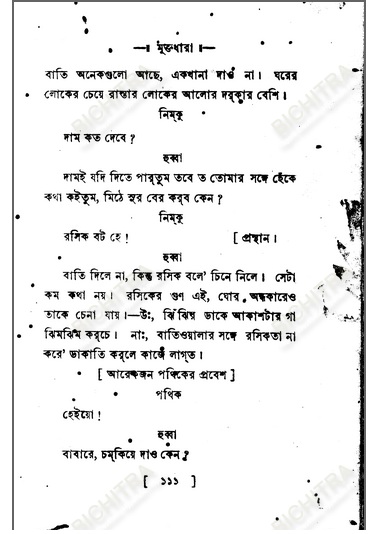 —॥ মুক্তধারা ॥—
বাতি অনেকগুলো আছে, একখানা দাও না। ঘরের
লোকের চেয়ে রাস্তার লোকের আলোর দর্‌কার বেশি।
নিম্‌কু
দাম কত দেবে ?
হুব্বা
দামই যদি দিতে পার্‌তুম তবে ত তোমার সঙ্গে হেঁকে
কথা কইতুম, মিঠে সুর বের কর্‌ব কেন ?
নিম্‌কু
রসিক বট হে ! [ প্রস্থান।
হুব্বা
বাতি দিলে না, কিন্তু রসিক বলে’ চিনে নিলে। সেটা
কম কথা নয়। রসিকের গুণ এই, ঘোর অন্ধকারেও
তাকে চেনা যায়।—উঃ, ঝিঁঝির ডাকে আকাশটার গা
ঝিমঝিম কর্‌চে। নাঃ, বাতিওয়ালার সঙ্গে রসিকতা না
করে’ ডাকাতি কর্‌লে কাজে লাগ্‌ত।
[ আরেকজন পথিকের প্রবেশ ]
পথিক
হেইয়ো !
হুব্বা
বাবারে, চম্‌কিয়ে দাও কেন ?
[ ১১১ ]
BICHITRA